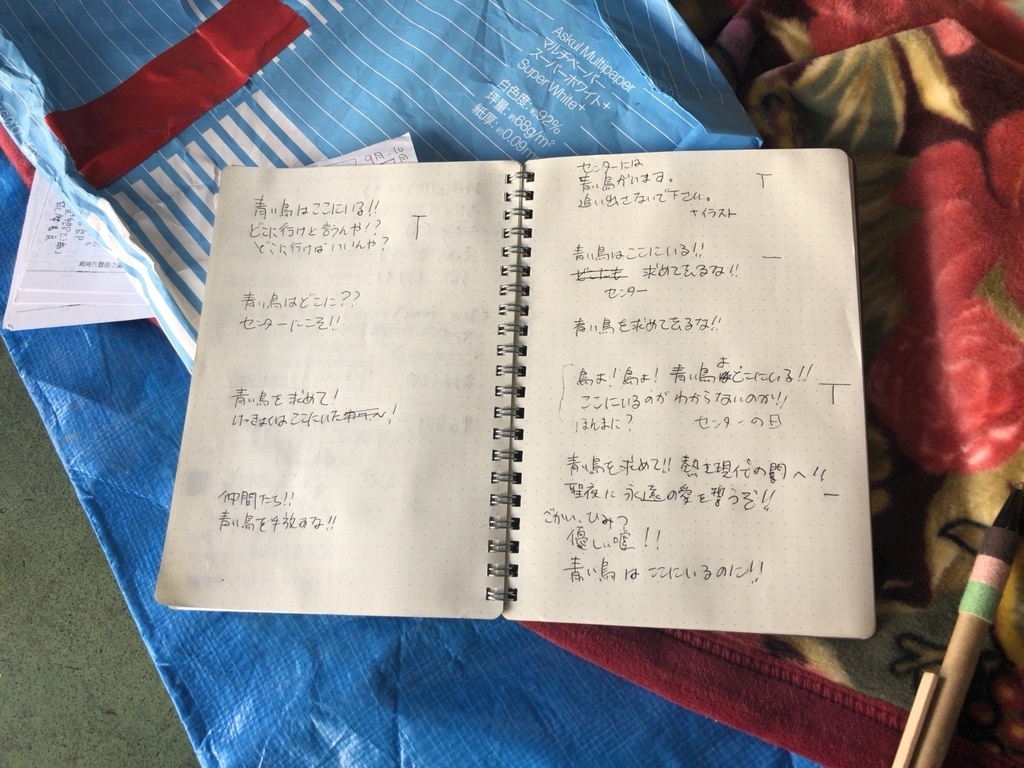 Askul Multipaper
マルチペーパー
スーパーホワイト+
Super White+
白色度:約92%
坪量:約68g/m²
紙厚:約0.09m
9月
青い鳥はここにいる!!
どこに行けと言うんや!?
どこに行けばいいんや?
T
青い鳥はどこに??
センターにこそ!!
青い鳥を求めて!
けっきょくはここにいた!
仲間たち!!
青い鳥を手放すな!!
センターには
青い鳥がいます。
追い出さないで下さい。
+イラスト
T
青い鳥はここにいる!!
どこにも 求めて去るな!!
センター
青い鳥を求めて去るな!!
鳥よ!鳥よ!青い鳥よどこにいる!!
ここにいるのがわからないのか!!
ほんまに? センターの日
T
青い鳥を求めて!! 熱き現代の闇へ!!
聖夜に永遠の愛を誓うぞ!!
ごかい、ひみつ
優しい嘘!!
青い鳥はここにいるのに!!